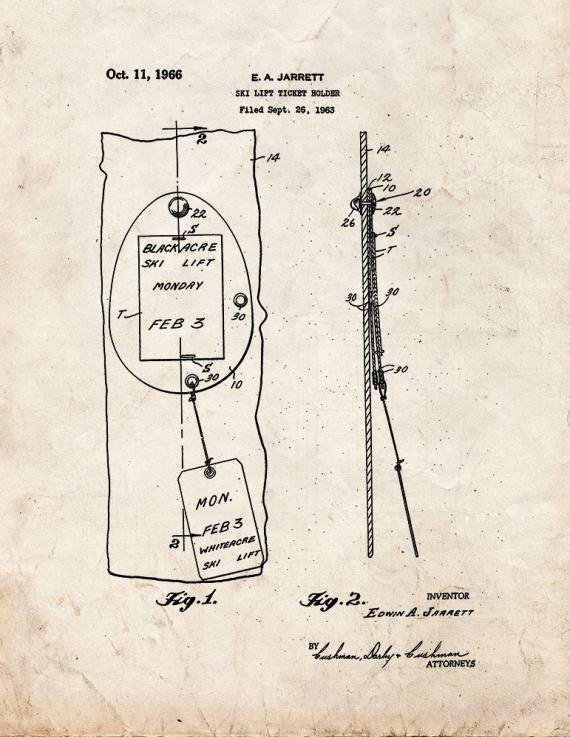 Oct. 11, 1966
E. A. JARRETT
SKI LIFT TICKET HOLDER
Filed Sept. 26, 1963
2
14
22
S
BLACKACRE
SKI LIFT
MONDAY
FEB 3
T
30
S
30
10
MON.
FEB 3
WHITEACRE
SKI LIFT
2
Fig. 1.
14
12
10
20
22
26
S
T
30
30
30
Fig. 2.
INVENTOR
EDWIN A. JARRETT
BY
Cushman, Darby & Cushman
ATTORNEYS